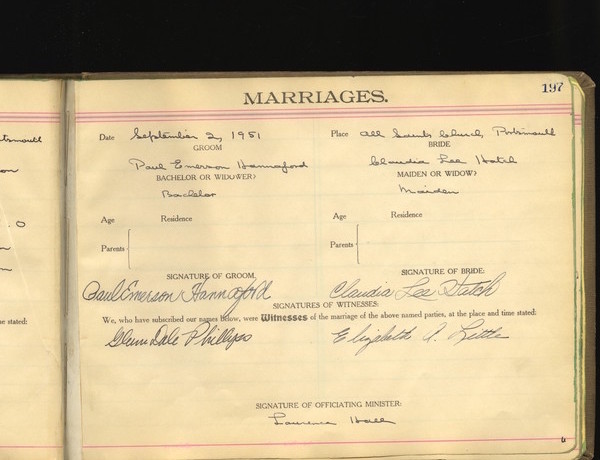 197
MARRIAGES.
Date September 2, 1951 Place All Saints Church, Portsmouth
GROOM BRIDE
Paul Emerson Hannaford Claudia Lee Hatch
BACHELOR OR WIDOWER? MAIDEN OR WIDOW?
Bachelor Maiden
Age Residence Age Residence
Parents Parents
SIGNATURE OF GROOM, SIGNATURE OF BRIDE:
Paul Emerson Hannaford Claudia Lee Hatch
SIGNATURES OF WITNESSES:
We, who have subscribed our names below, were Witnesses of the marriage of the above named parties, at the place and time stated:
Glenn Dale Phillips Elizabeth A. Little
SIGNATURE OF OFFICIATING MINISTER:
Laurence Hall